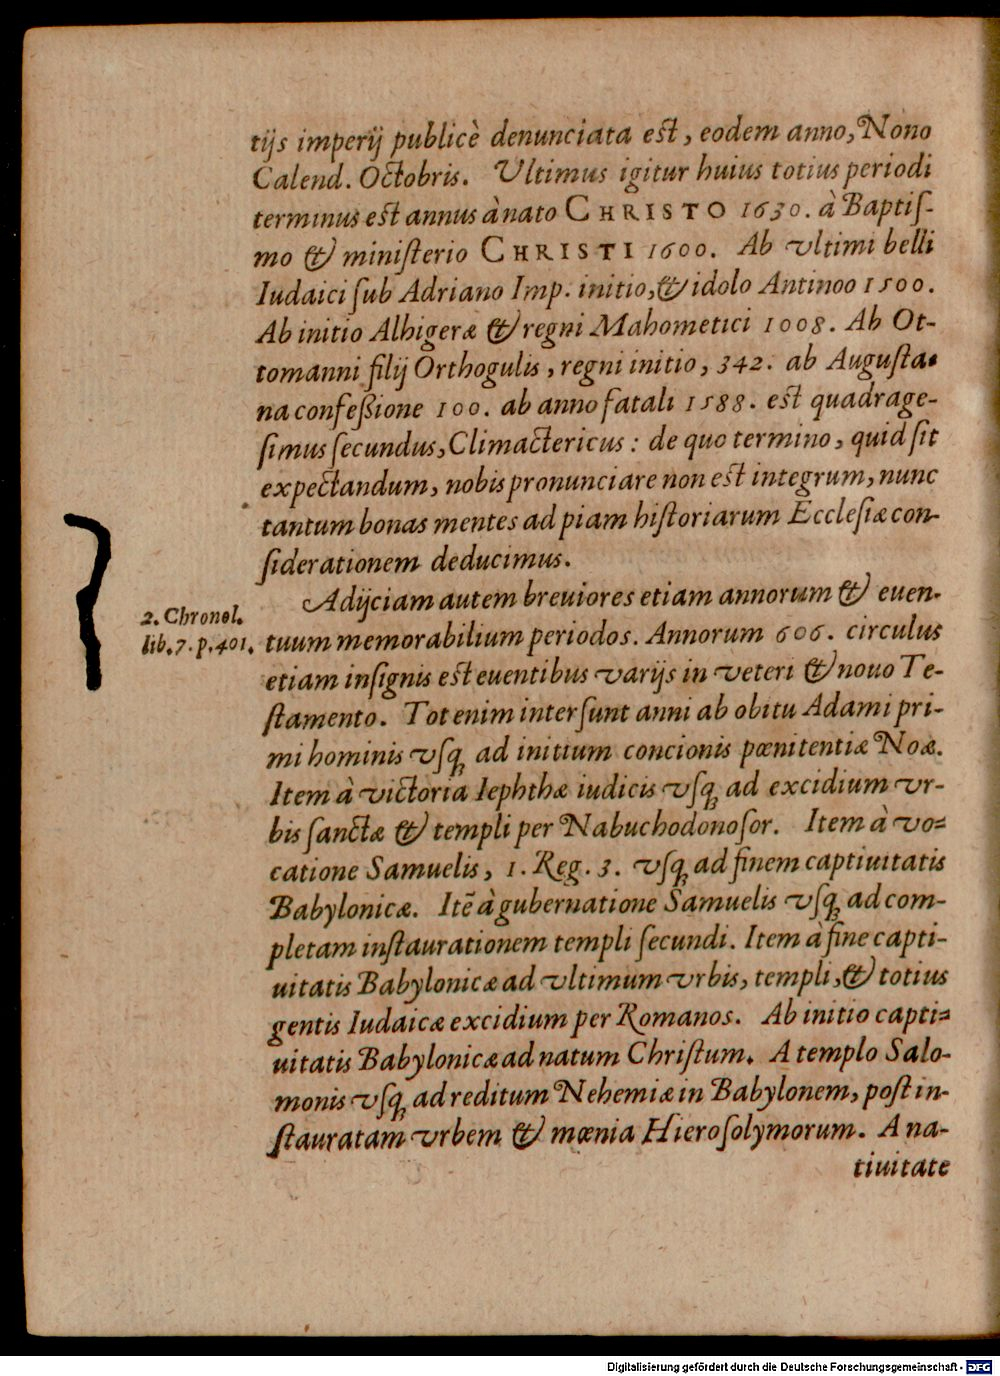 tijs imperij publicè denunciata est, eodem anno, Nono
Calend. Octobris. Ultimus igitur huius totius periodi
terminus est annus à nato CHRISTO 1630. à Baptiſ-
mo & miniſterio CHRISTI 1600. Ab vltimi belli
Iudaici ſub Adriano Imp. initio, & idolo Antinoo 1500.
Ab initio Alhigeræ & regni Mahometici 1008. Ab Ot-
tomanni filij Orthogulis, regni initio, 342. ab Auguſta-
na confeßione 100. ab anno fatali 1588. est quadrage-
ſimus ſecundus, Climactericus: de quo termino, quid ſit
expectandum, nobis pronunciare non est integrum, nunc
tantum bonas mentes ad piam hiſtoriarum Eccleſiæ con-
ſiderationem deducimus.
Adijciam autem breuiores etiam annorum & euen-
2. Chronol.
lib. 7. p. 401.
tuum memorabilium periodos. Annorum 606. circulus
etiam inſignis est euentibus varijs in veteri & nouo Te-
ſtamento. Tot enim interſunt anni ab obitu Adami pri-
mi hominis vſq́ ad initium concionis pœnitentiæ Noæ.
Item à victoria Iephthæ iudicis vſq́ ad excidium vr-
bis ſanctæ & templi per Nabuchodonoſor. Item à vo-
catione Samuelis, 1. Reg. 3. vſq́ ad finem captiuitatis
Babylonicæ. Itē à gubernatione Samuelis vſq́ ad com-
pletam inſtaurationem templi ſecundi. Item à fine capti-
uitatis Babylonicæ ad vltimum vrbis, templi, & totius
gentis Iudaicæ excidium per Romanos. Ab initio capti-
uitatis Babylonicæ ad natum Chriſtum. A templo Salo-
monis vſq́ ad reditum Nehemiæ in Babylonem, poſt in-
ſtauratam vrbem & mœnia Hieroſolymorum. A na-
tiuitate
Digitalisierung gefördert durch die Deutsche Forschungsgemeinschaft - DFG